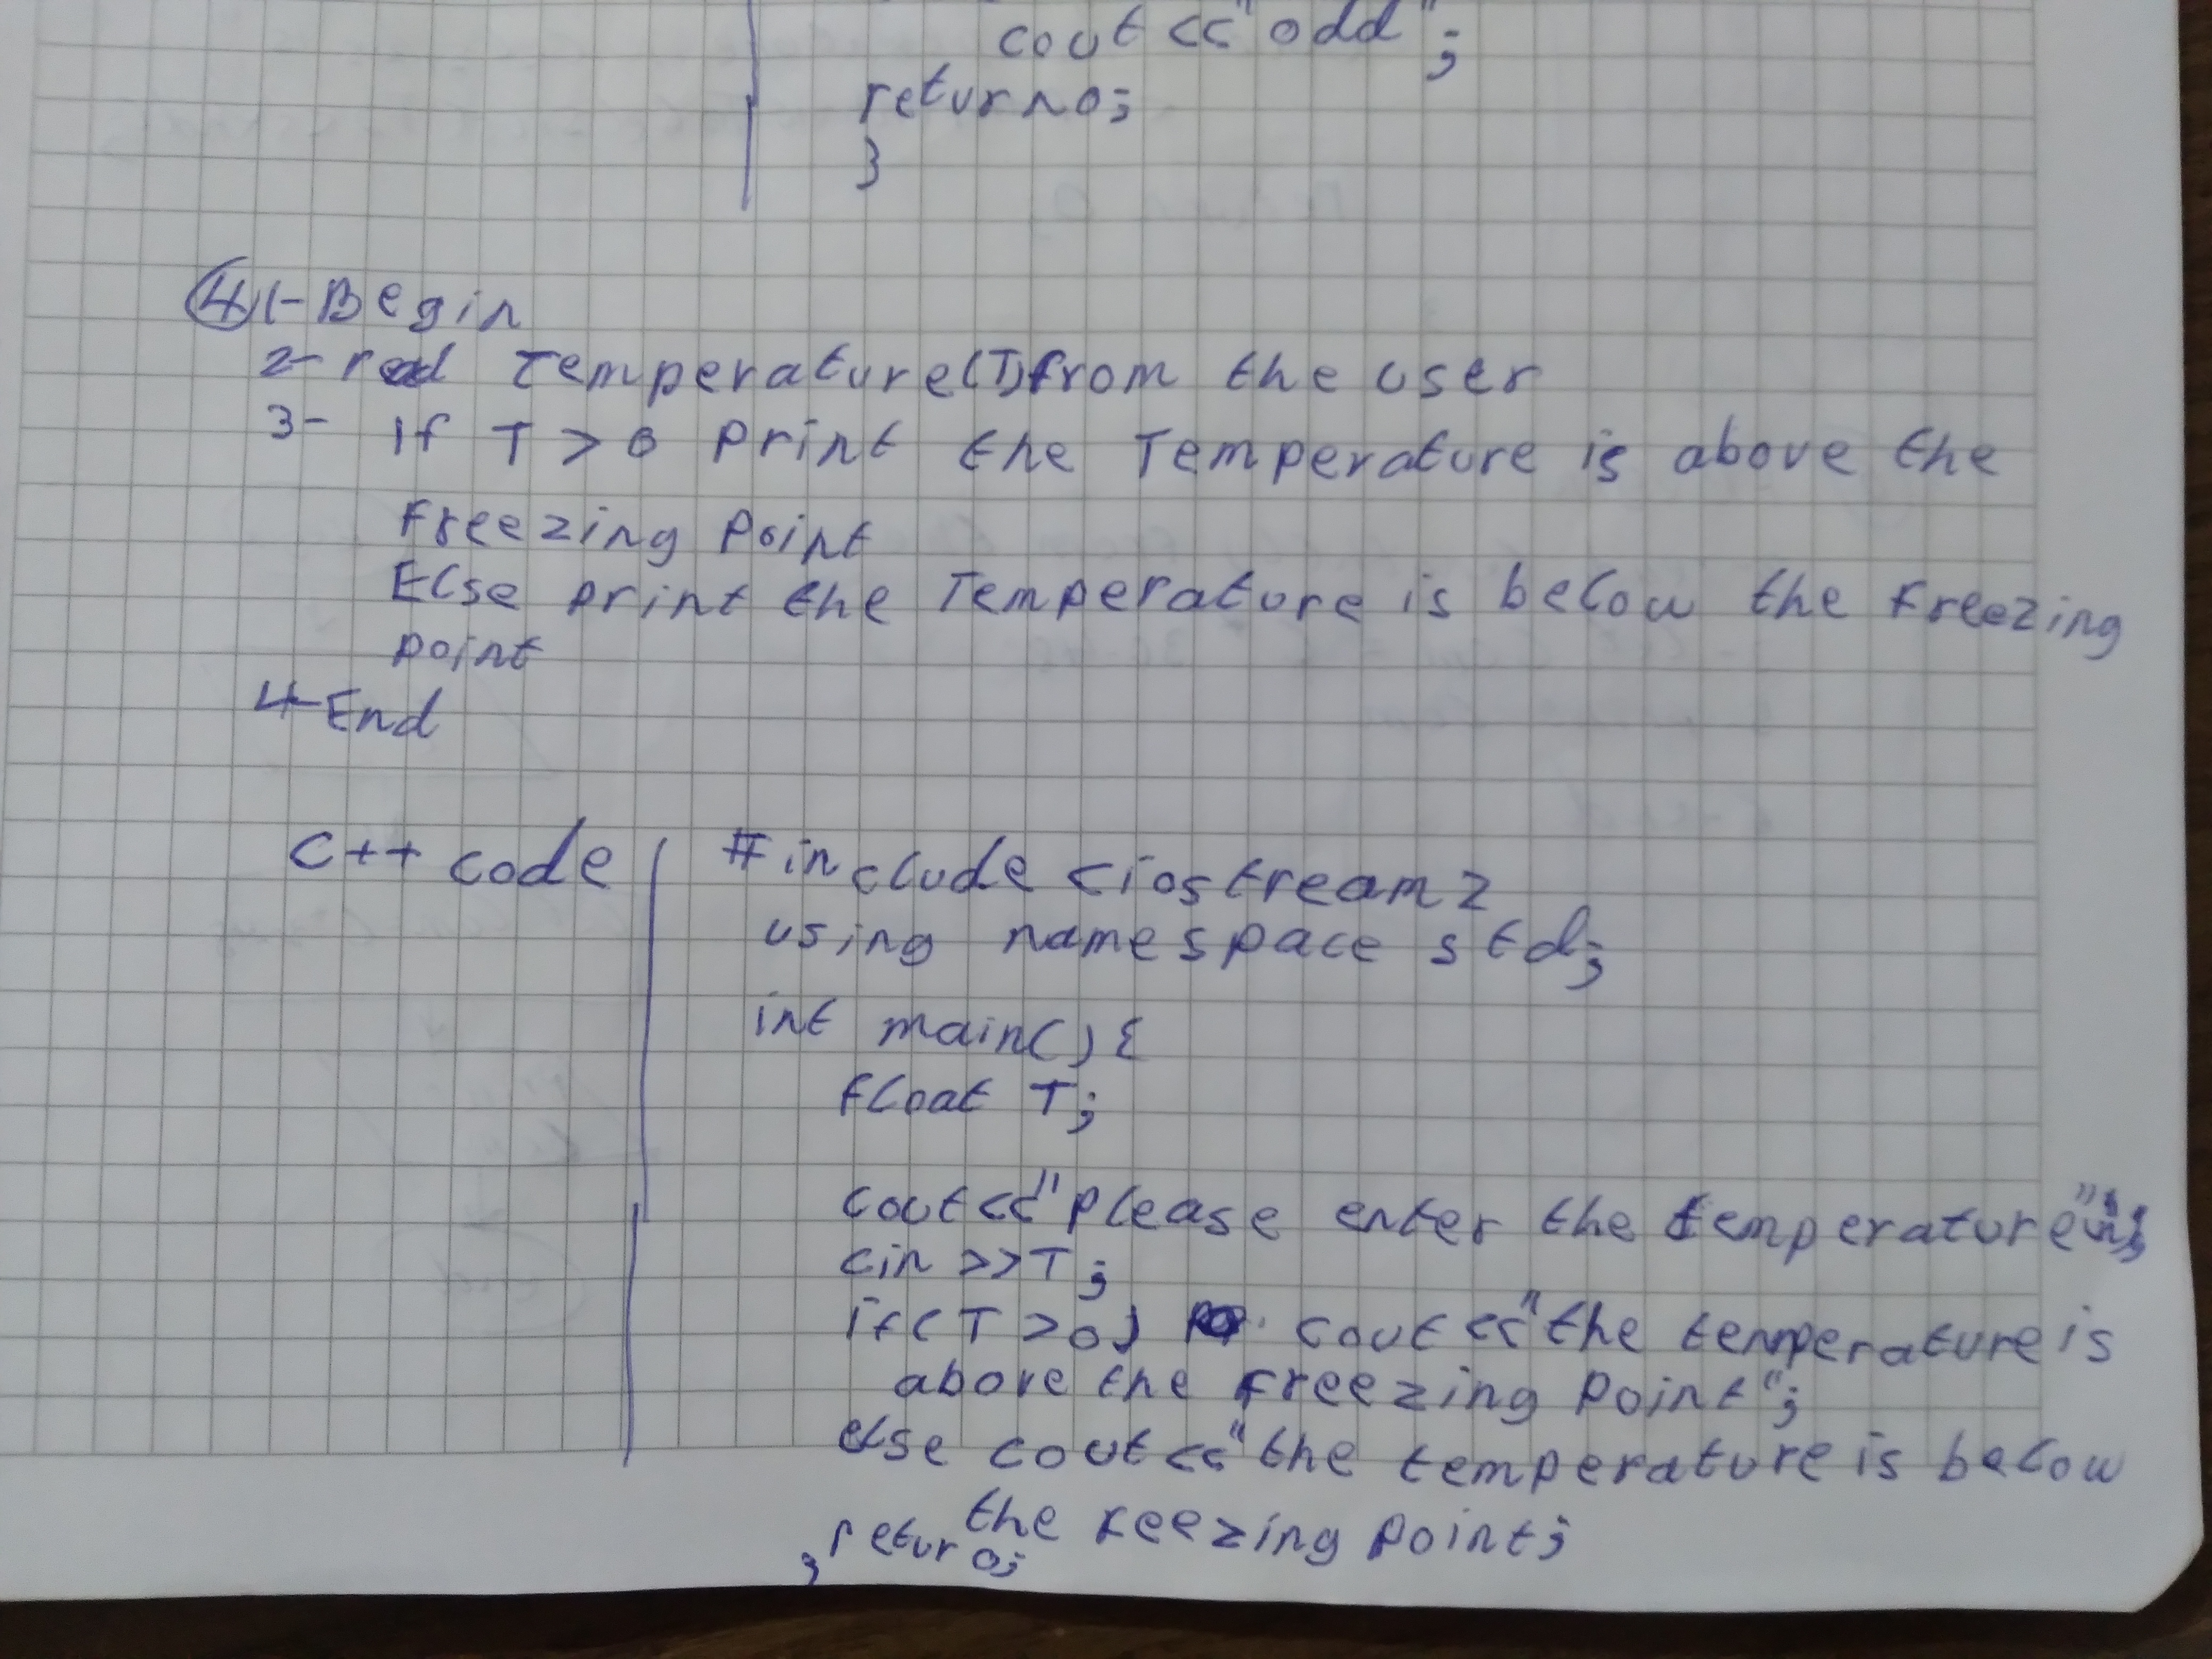 cout << "odd";
return 0;
}
④ 1- Begin
2- read Temperature (T) from the user
3- If T > 0 print the Temperature is above the
Freezing point
Else print the Temperature is below the freezing
point
4- End
C++ code
#include <iostream>
using namespace std;
int main() {
float T;
cout << "please enter the temperature
cin >> T;
if (T > 0) cout << "the temperature is
above the freezing point";
else cout << "the temperature is below
the reezing point;
retur 0;
}